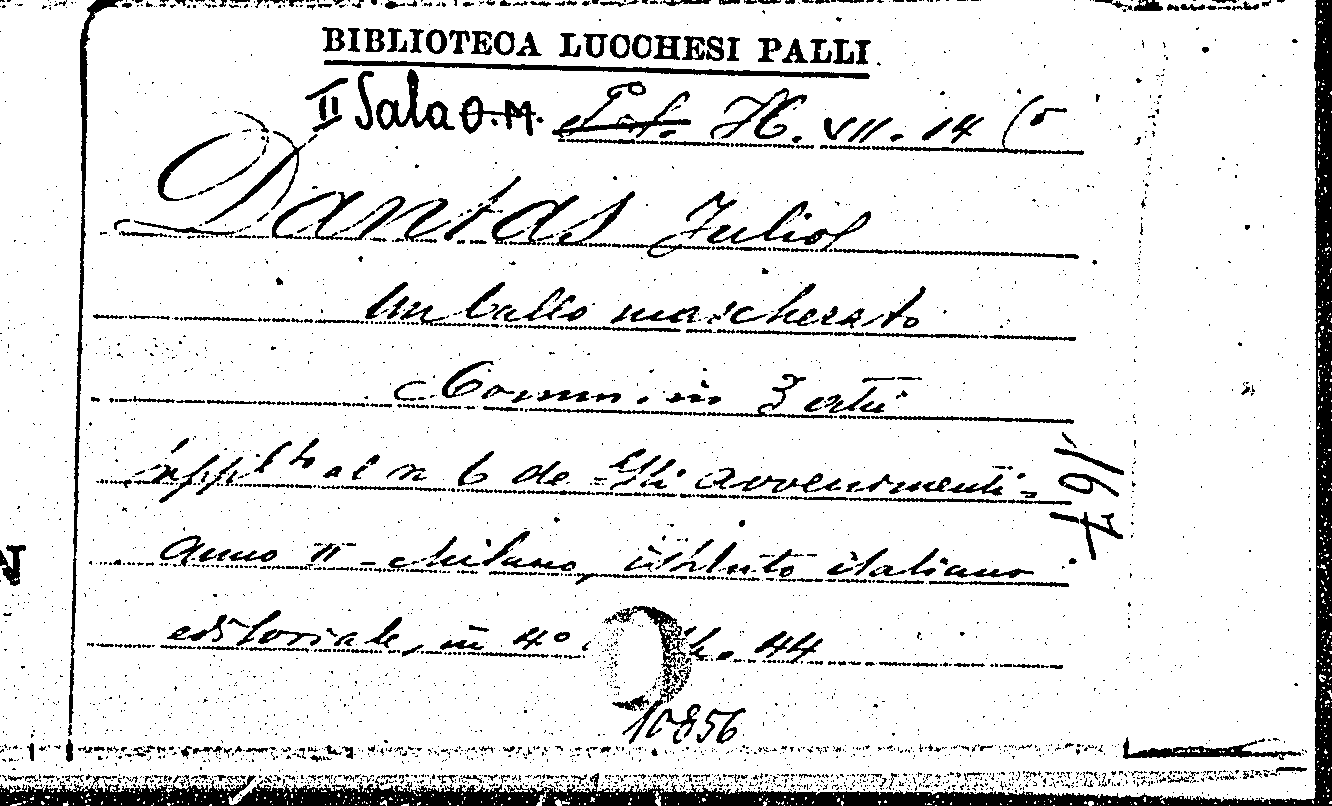 BIBLIOTECA LUCCHESI PALLI
II Sala O.M. H. VII. 14 (5
Dantas Julio
Un ballo mascherato
Comm. in 3 atti
suppl.to al n 6 de "Gli avvenimenti"
anno II - Milano, istituto italiano
editoriale, in 4° 44
10856
167